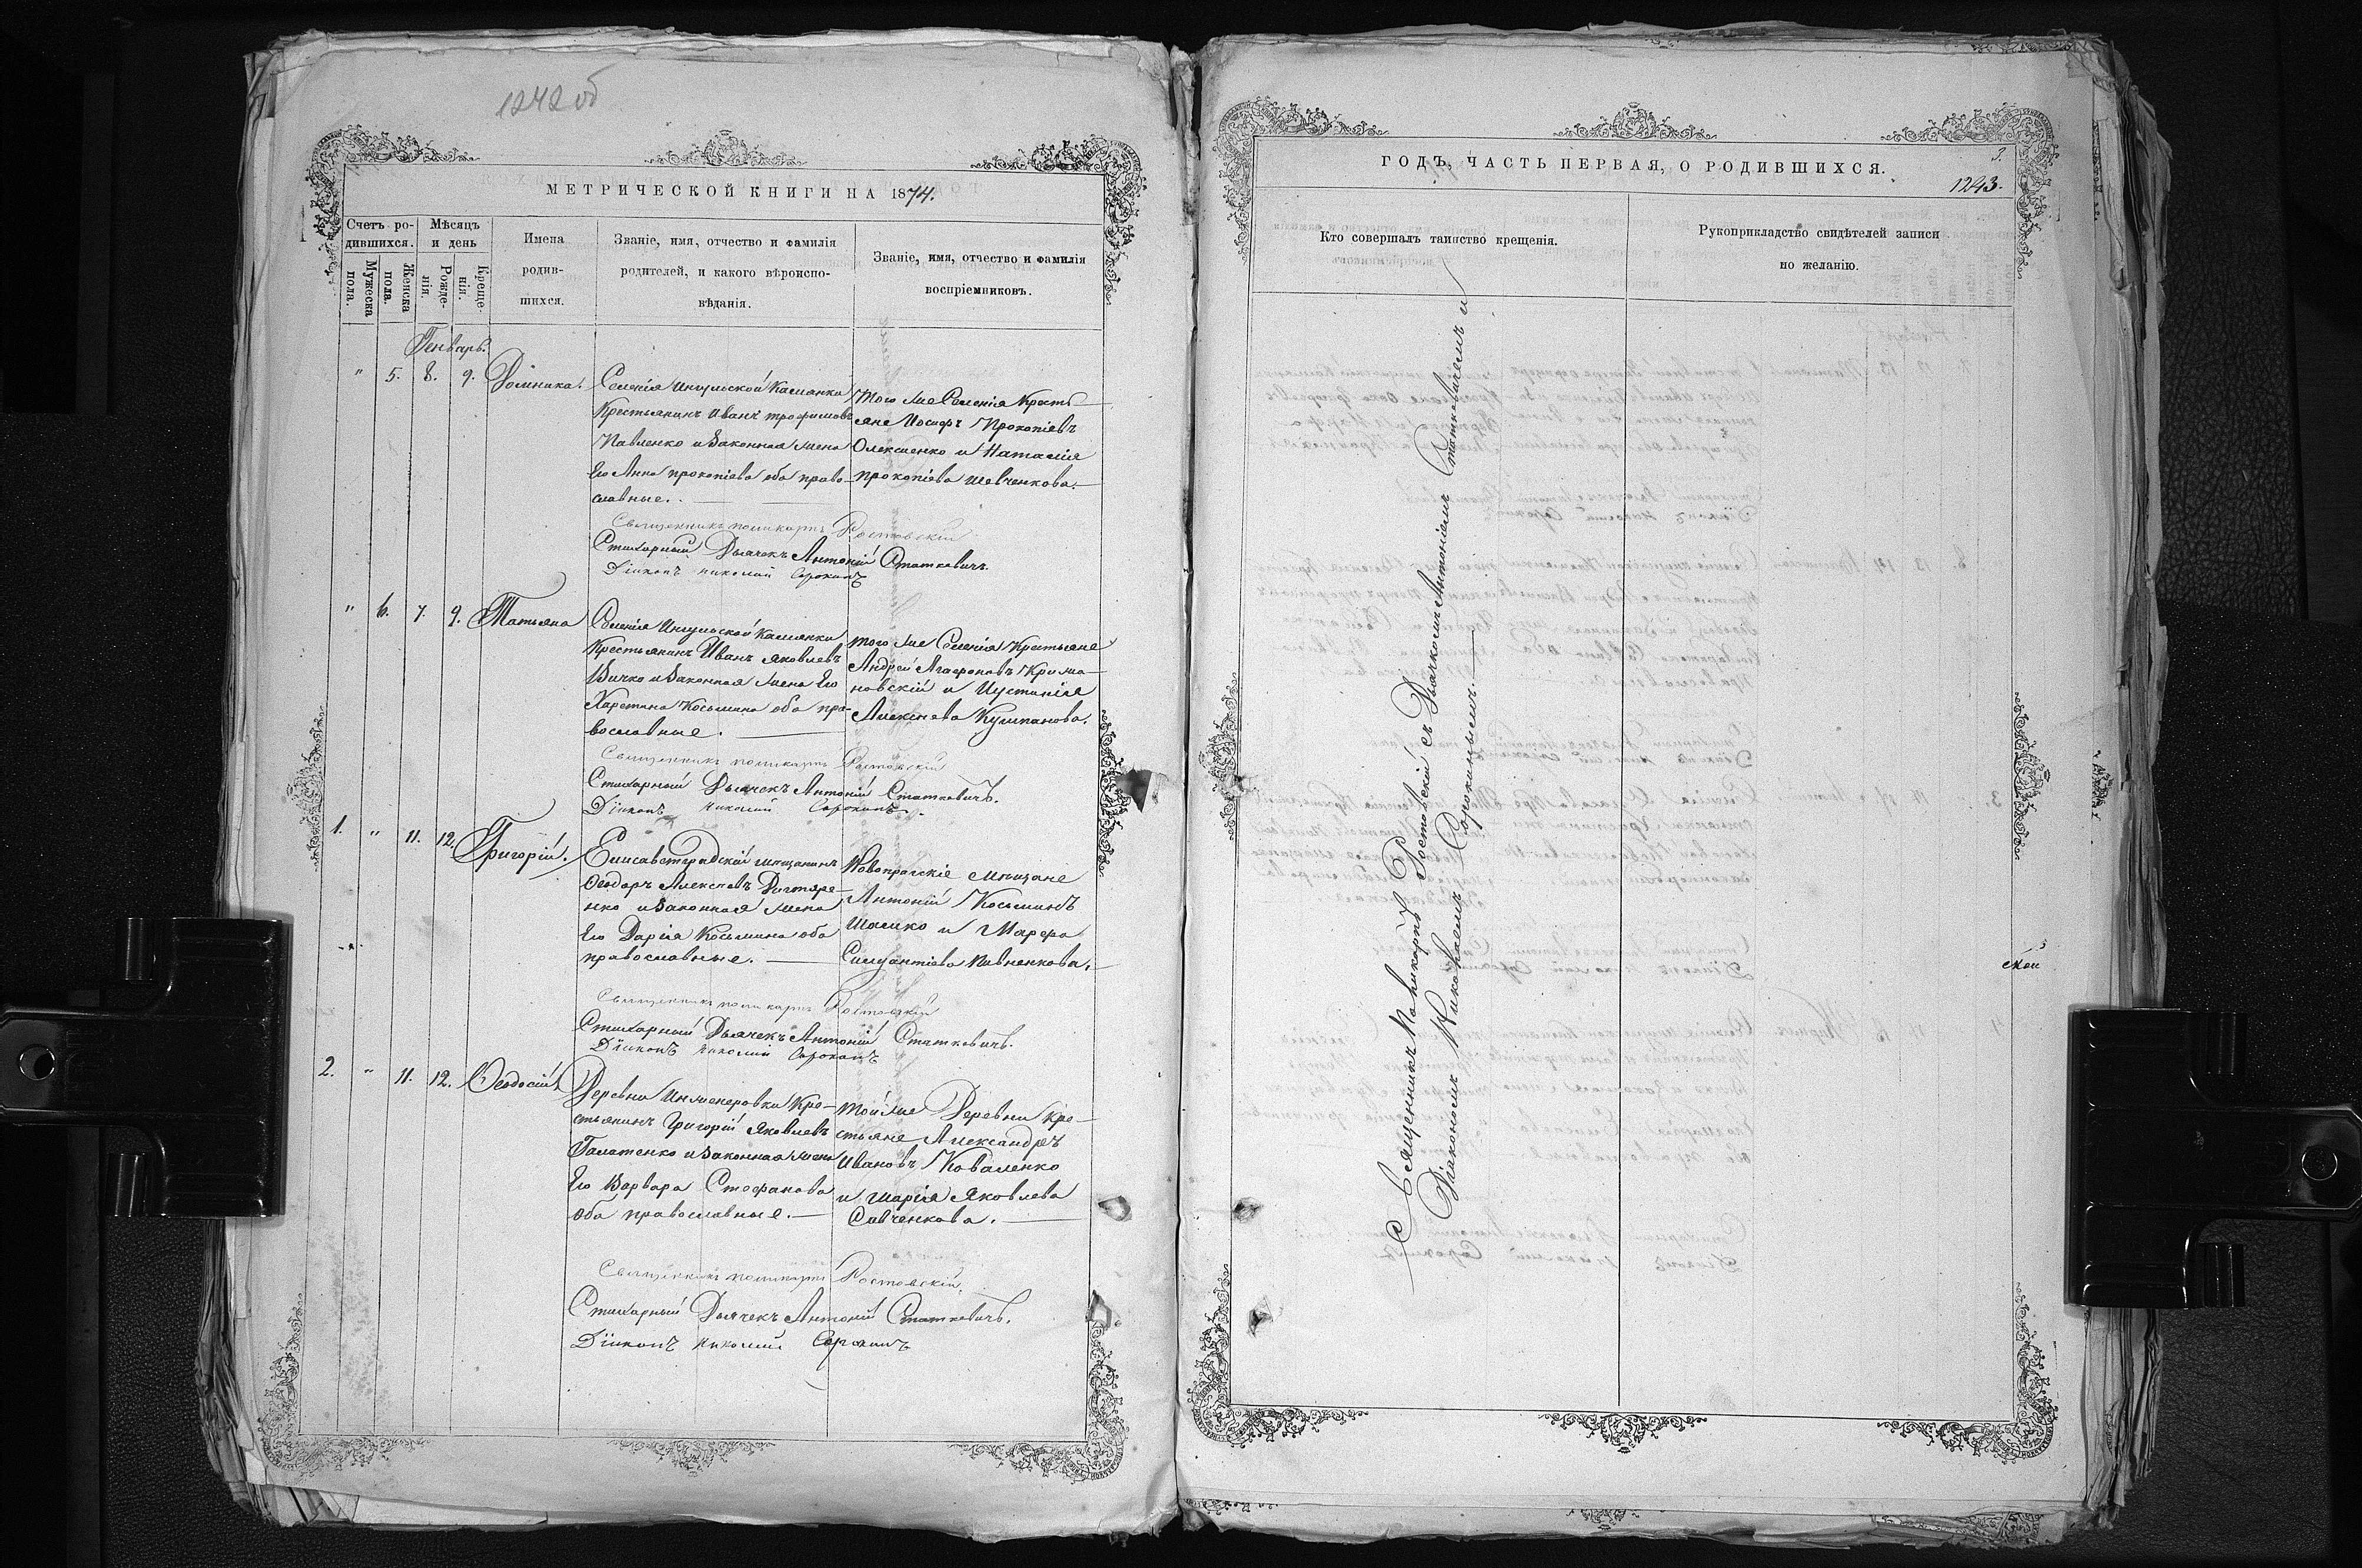 1242об
МЕТРИЧЕСКОЙ КНИГИ НА 1874.
Счетъ ро-
дившихся.
Мужеска
пола.
Женска
пола.
Мѣсяцъ
и день
Рожде-
нія.
Креще-
нія.
Имена
родив-
шихся.
Званіе, имя, отчество и фамилія
родителей, и какого вѣроиспо-
вѣданія.
Званіе, имя, отчество и фамилія
воспріемниковъ.
Генварь.
" 5. 8. 9. Домника.
Селенія Ингульской Камянки
Крестьянинъ Иванъ трофимовъ
Павленко и Законная жена
Его Анна прокопіева оба право-
славные.
Того же Селенія Кресть-
яне Іосифъ Прокопіевъ
Олексіенко и Наталія
прокопіева Шевченкова.
Священникъ поликарпъ Ростовскій
Стихарный Дьячекъ Антоній Статкевичъ.
Діаконъ николай Сорокинъ
" 6. 7. 9. Татьяна
Селенія Ингульской Камянки
Крестьянинъ Иванъ яковлевъ
Бичко и Законная жена Его
Харетина Косьмина оба пра-
вославные.
того же Селенія Крестьяне
Андрей Агафоновъ Крижа-
новскій и Иустинія
Алексіева
Священникъ поликарпъ Ростовскій
Стихарный Дьячекъ Антоній Статкевичъ.
Діаконъ николай Сорокинъ.
1. " 11. 12. Григорій.
Елисаветградскій мещанинъ
Ѳеодоръ Алексѣевъ Дигтяре-
нко и Законная жена
Его Дарія Косьмина оба
православные.
Новопражскіе мѣщане
Антоній Косьминъ
Шалико и Марфа
Павненкова.
Священникъ поликарпъ Ростовскій
Стихарный Дьячекъ Антоній Статкевичъ.
Діаконъ николай Сорокинъ
2. " 11. 12. Ѳеодосій
Деревни Инженеровки Кре-
стьянинъ Григорій Яковлевъ
Галатенко и Законная жена
Его Варвара Стефанова
оба православные.
той же Деревни Кре-
стьяне Александръ
Ивановъ Коваленко
и Марія Яковлева
Савченкова.
Священникъ поликарпъ Ростовскій.
Стихарный Дьячекъ Антоній Статкевичъ.
Діаконъ николай Сорокинъ
ГОДЪ, ЧАСТЬ ПЕРВАЯ, О РОДИВШИХСЯ.
3.
1243.
Кто совершалъ таинство крещенія.
Рукоприкладство свидѣтелей записи
по желанію.
Священникъ Поликарпъ Ростовскій съ Дьячкомъ Антоніемъ Статкевичемъ и
Діакономъ Николаемъ Сорокинымъ.